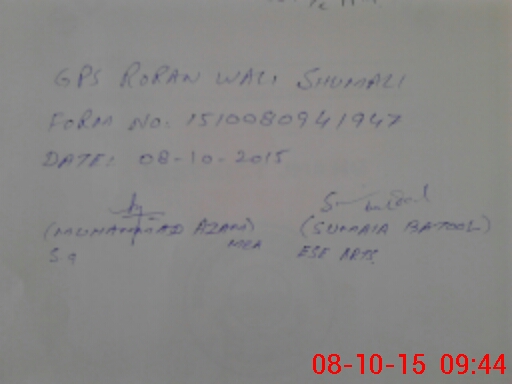 GPS RORAN WALI SHUMALI
FORM NO: 1510080941947
DATE: 08-10-2015
(MUHAMMAD AZAM) (SUMAIA BATOOL)
MEA ESE ARTS
08-10-15 09:44